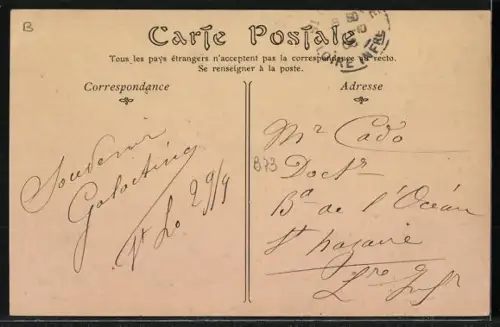 B
Carte Postale
Tous les pays étrangers n'acceptent pas la correspondance au recto.
Se renseigner à la poste.
Correspondance
Adresse
LOIRE INFRE
Souvenir
St Lo 29/9
B73
Mr Cado
Doctr
Bd de l'Océan
St Nazaire
Lre Infr